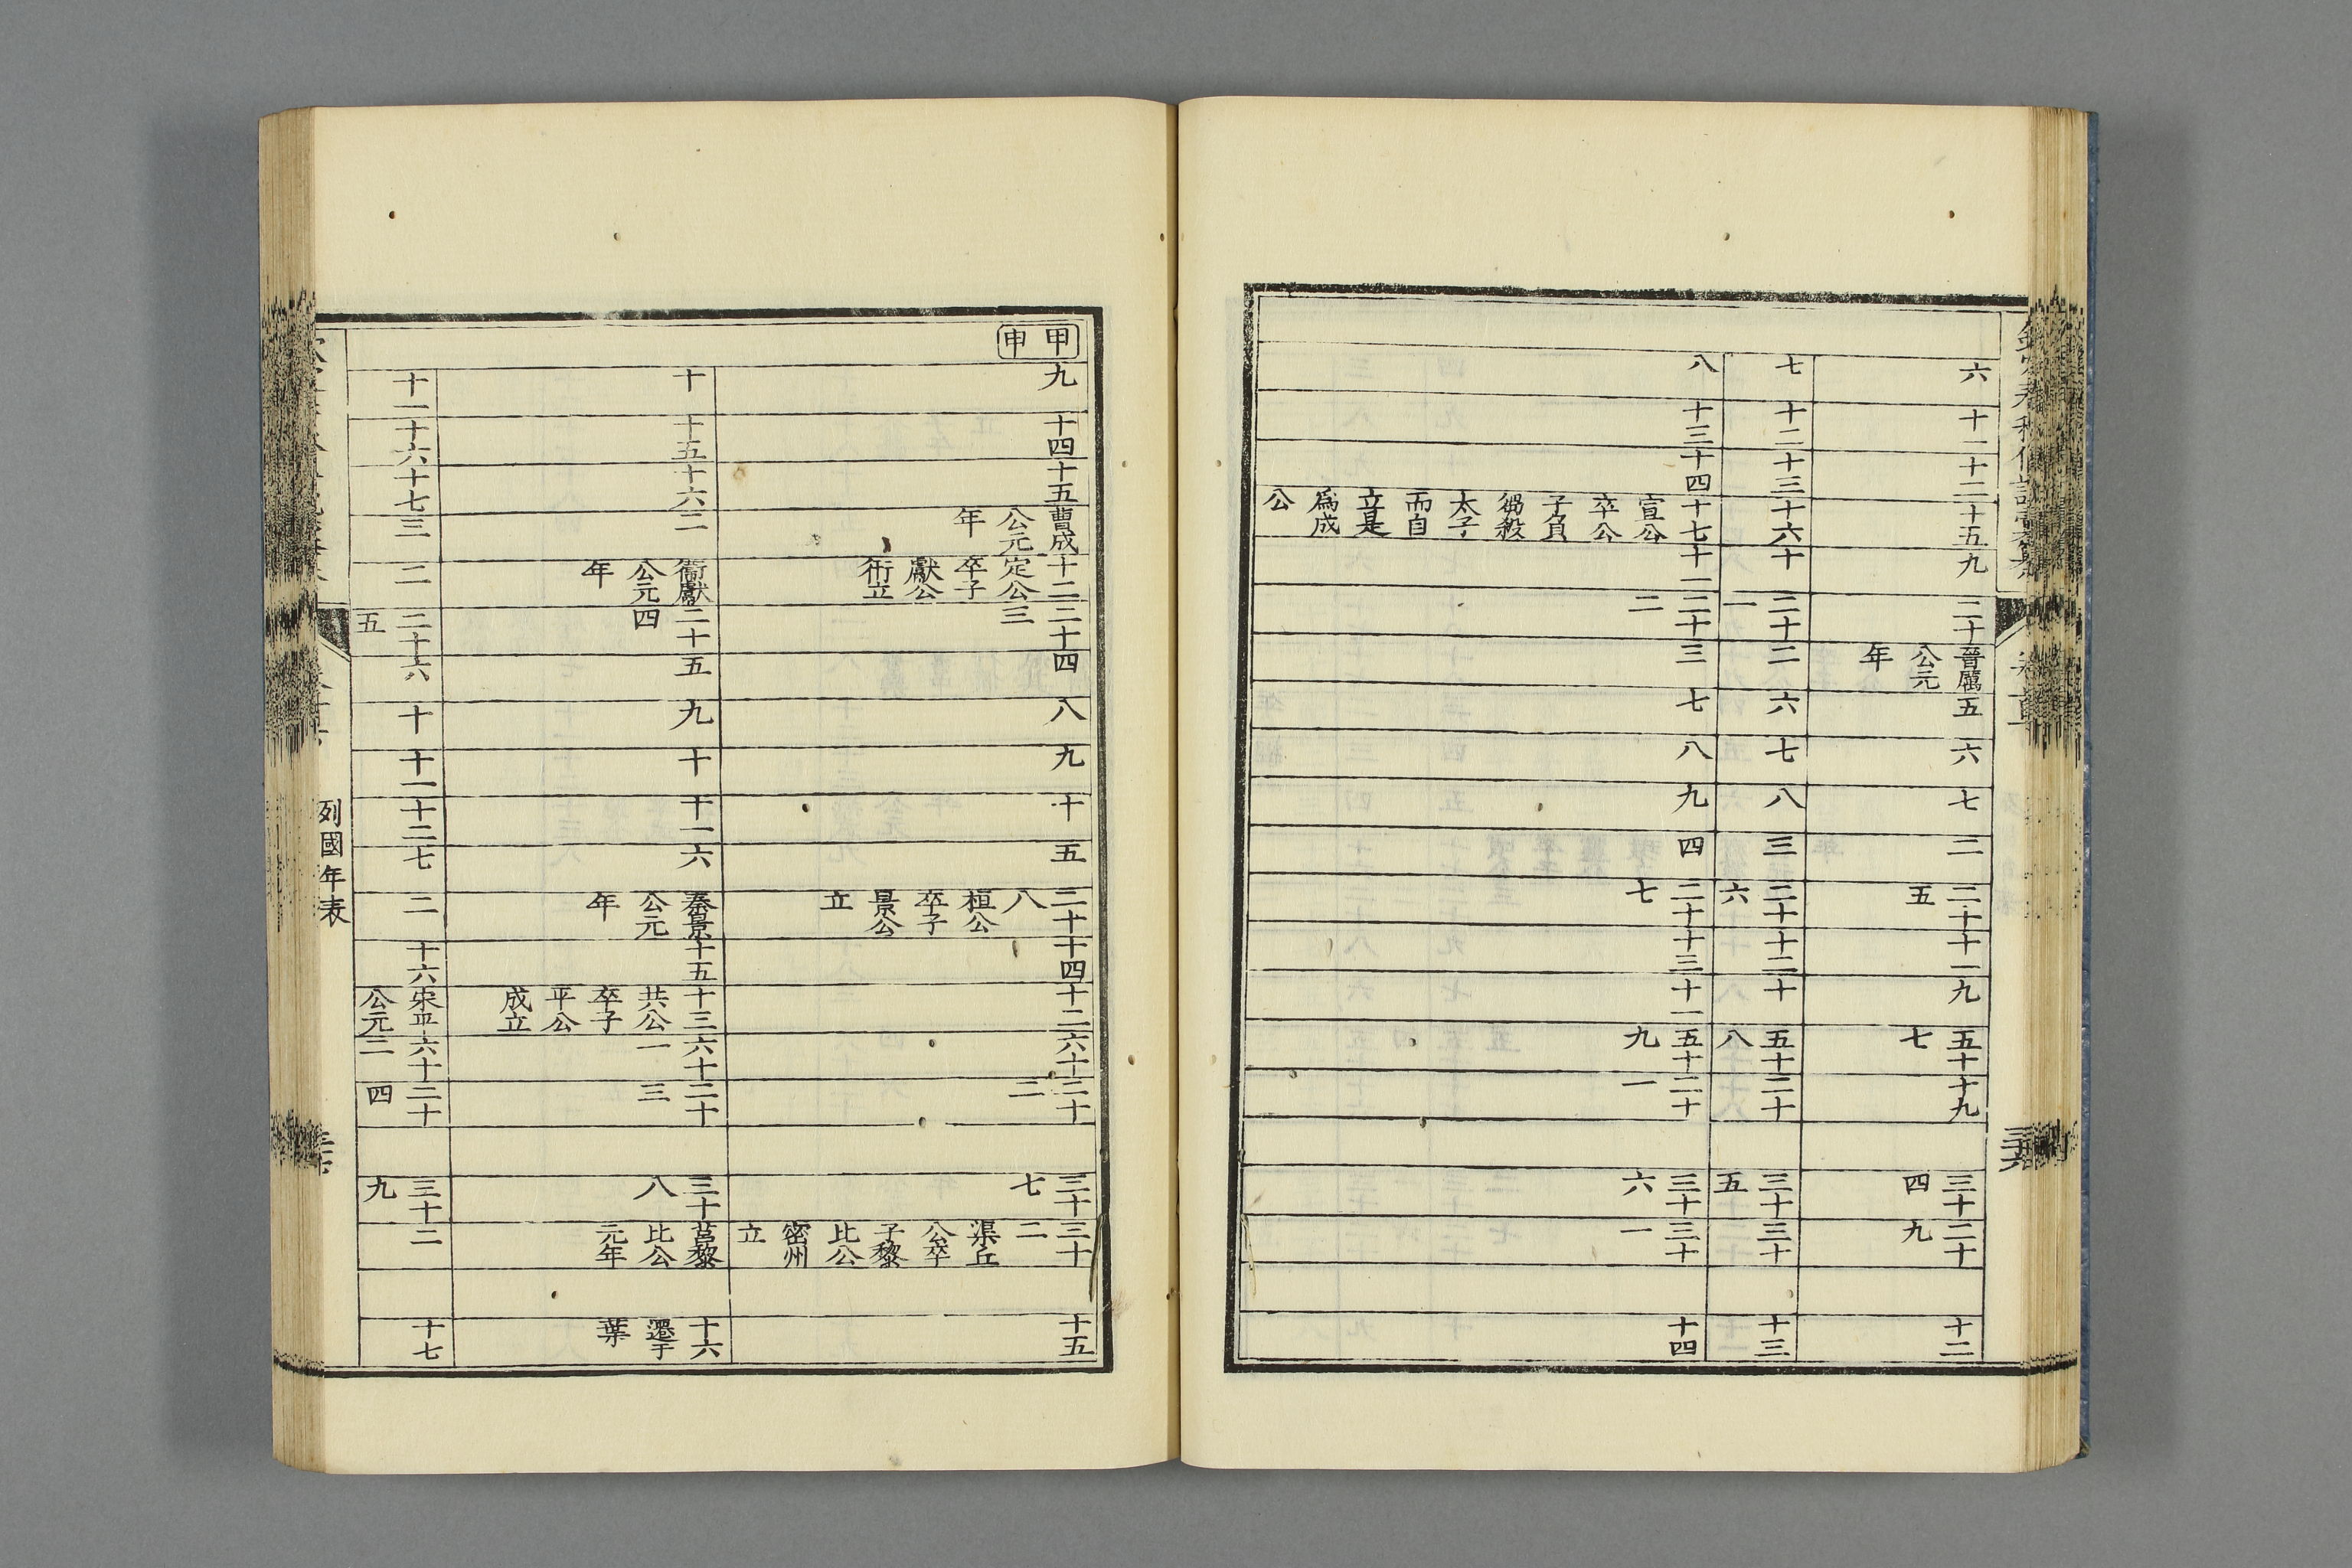 欽定春秋傳說彙纂
六 十一 十二 十五 九 二十 晉厲 五 六 七 二 二十 十一 九 五十 十九 三十 二十 十二
公元 五 七 四 九
年
七 十二 十三 十六 十 二十 二 六 七 八 三 二十 十二 十 五十 二十 三十 三十 十三
一 六 八 五
八 十三 十四 十七 十一 二十 三 七 八 九 四 二十 十三 十一 五十 二十 三十 三十 十四
宣公 二 七 九 一 六 一
卒公
子負
芻殺
太子
而自
立是
爲成
公
甲申
九 十四 十五 曹成 十二 二十 四 八 九 十 五 二十 十四 十二 六十 二十 三十 三十 十五
公元 定公 三 八 二 七 二
年 卒子 桓公 渠丘
獻公 卒子 公卒
衎立 景公 子黎
立 比公
密州
立
十 十五 十六 二 衞獻 二十 五 九 十 十一 六 秦景 十五 十三 六十 二十 三十 莒黎 十六
公元 四 公元 共公 一 三 八 比公 遷于
年 年 卒子 元年 葉
平公
成立
十一 十六 十七 三 二 二十 六 十 十一 十二 七 二 十六 宋平 六十 二十 三十 二 十七
五 公元 二 四 九
列國年表